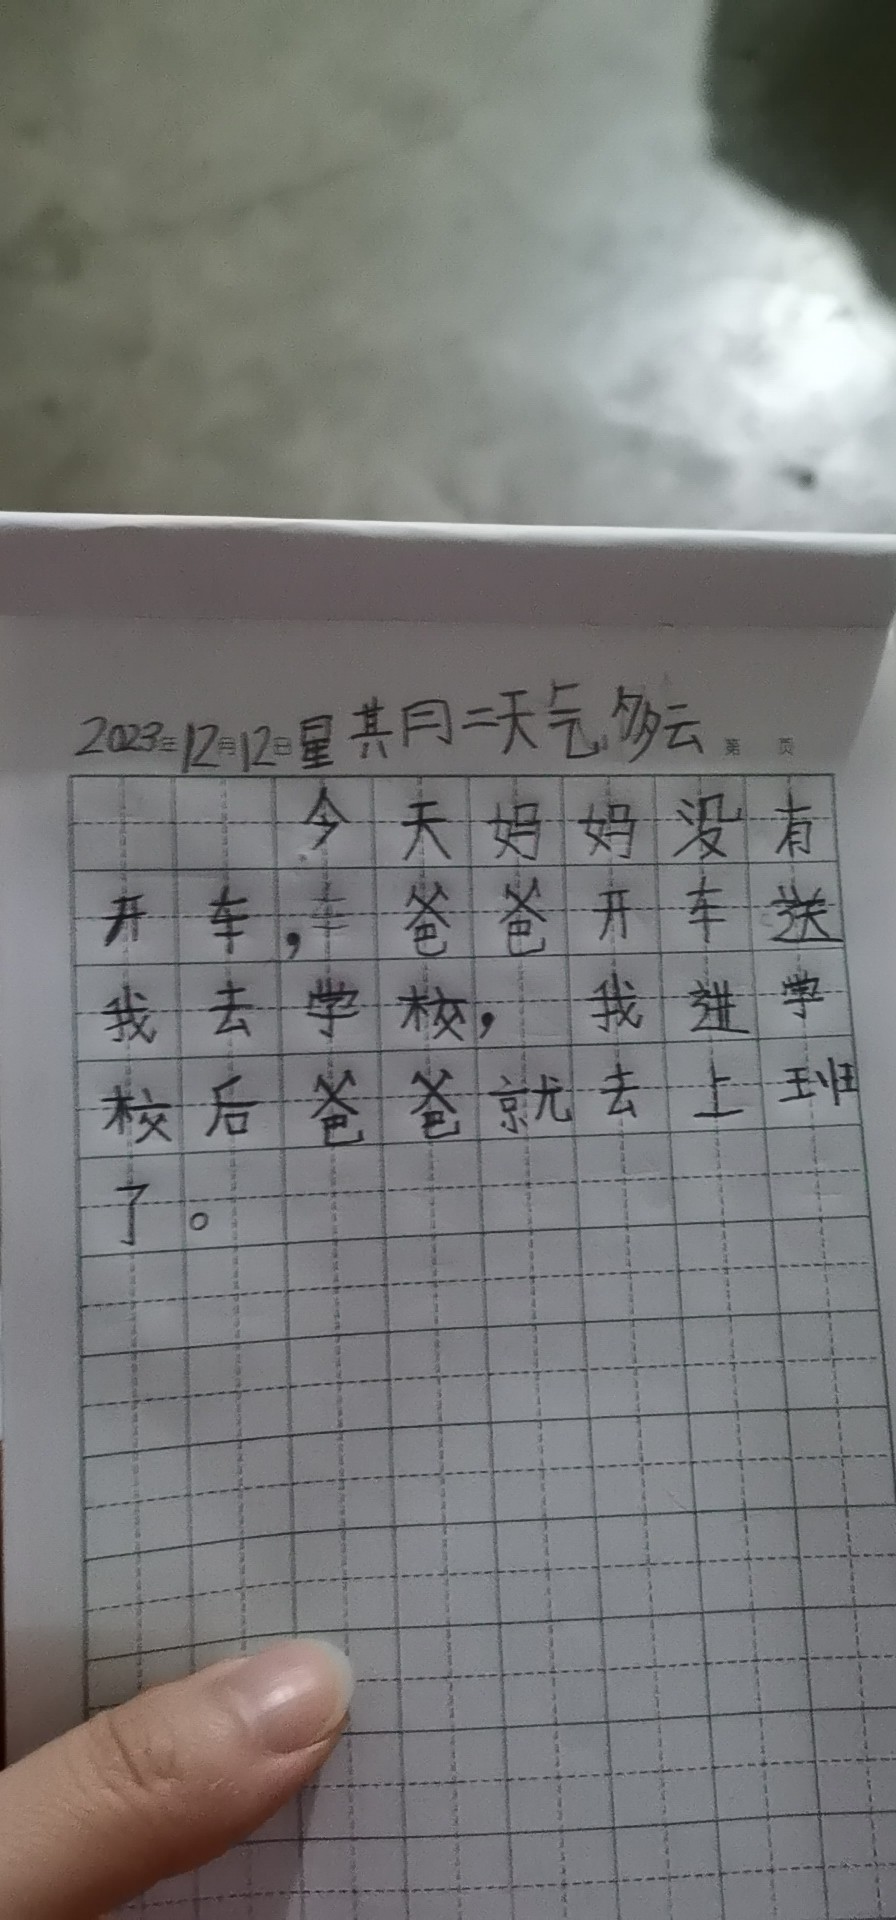 2023年12月12日星其月二天气多云 第 页
今天妈妈没有
开车,爸爸开车送
我去学校,我进学
校后爸爸就去上班
了。